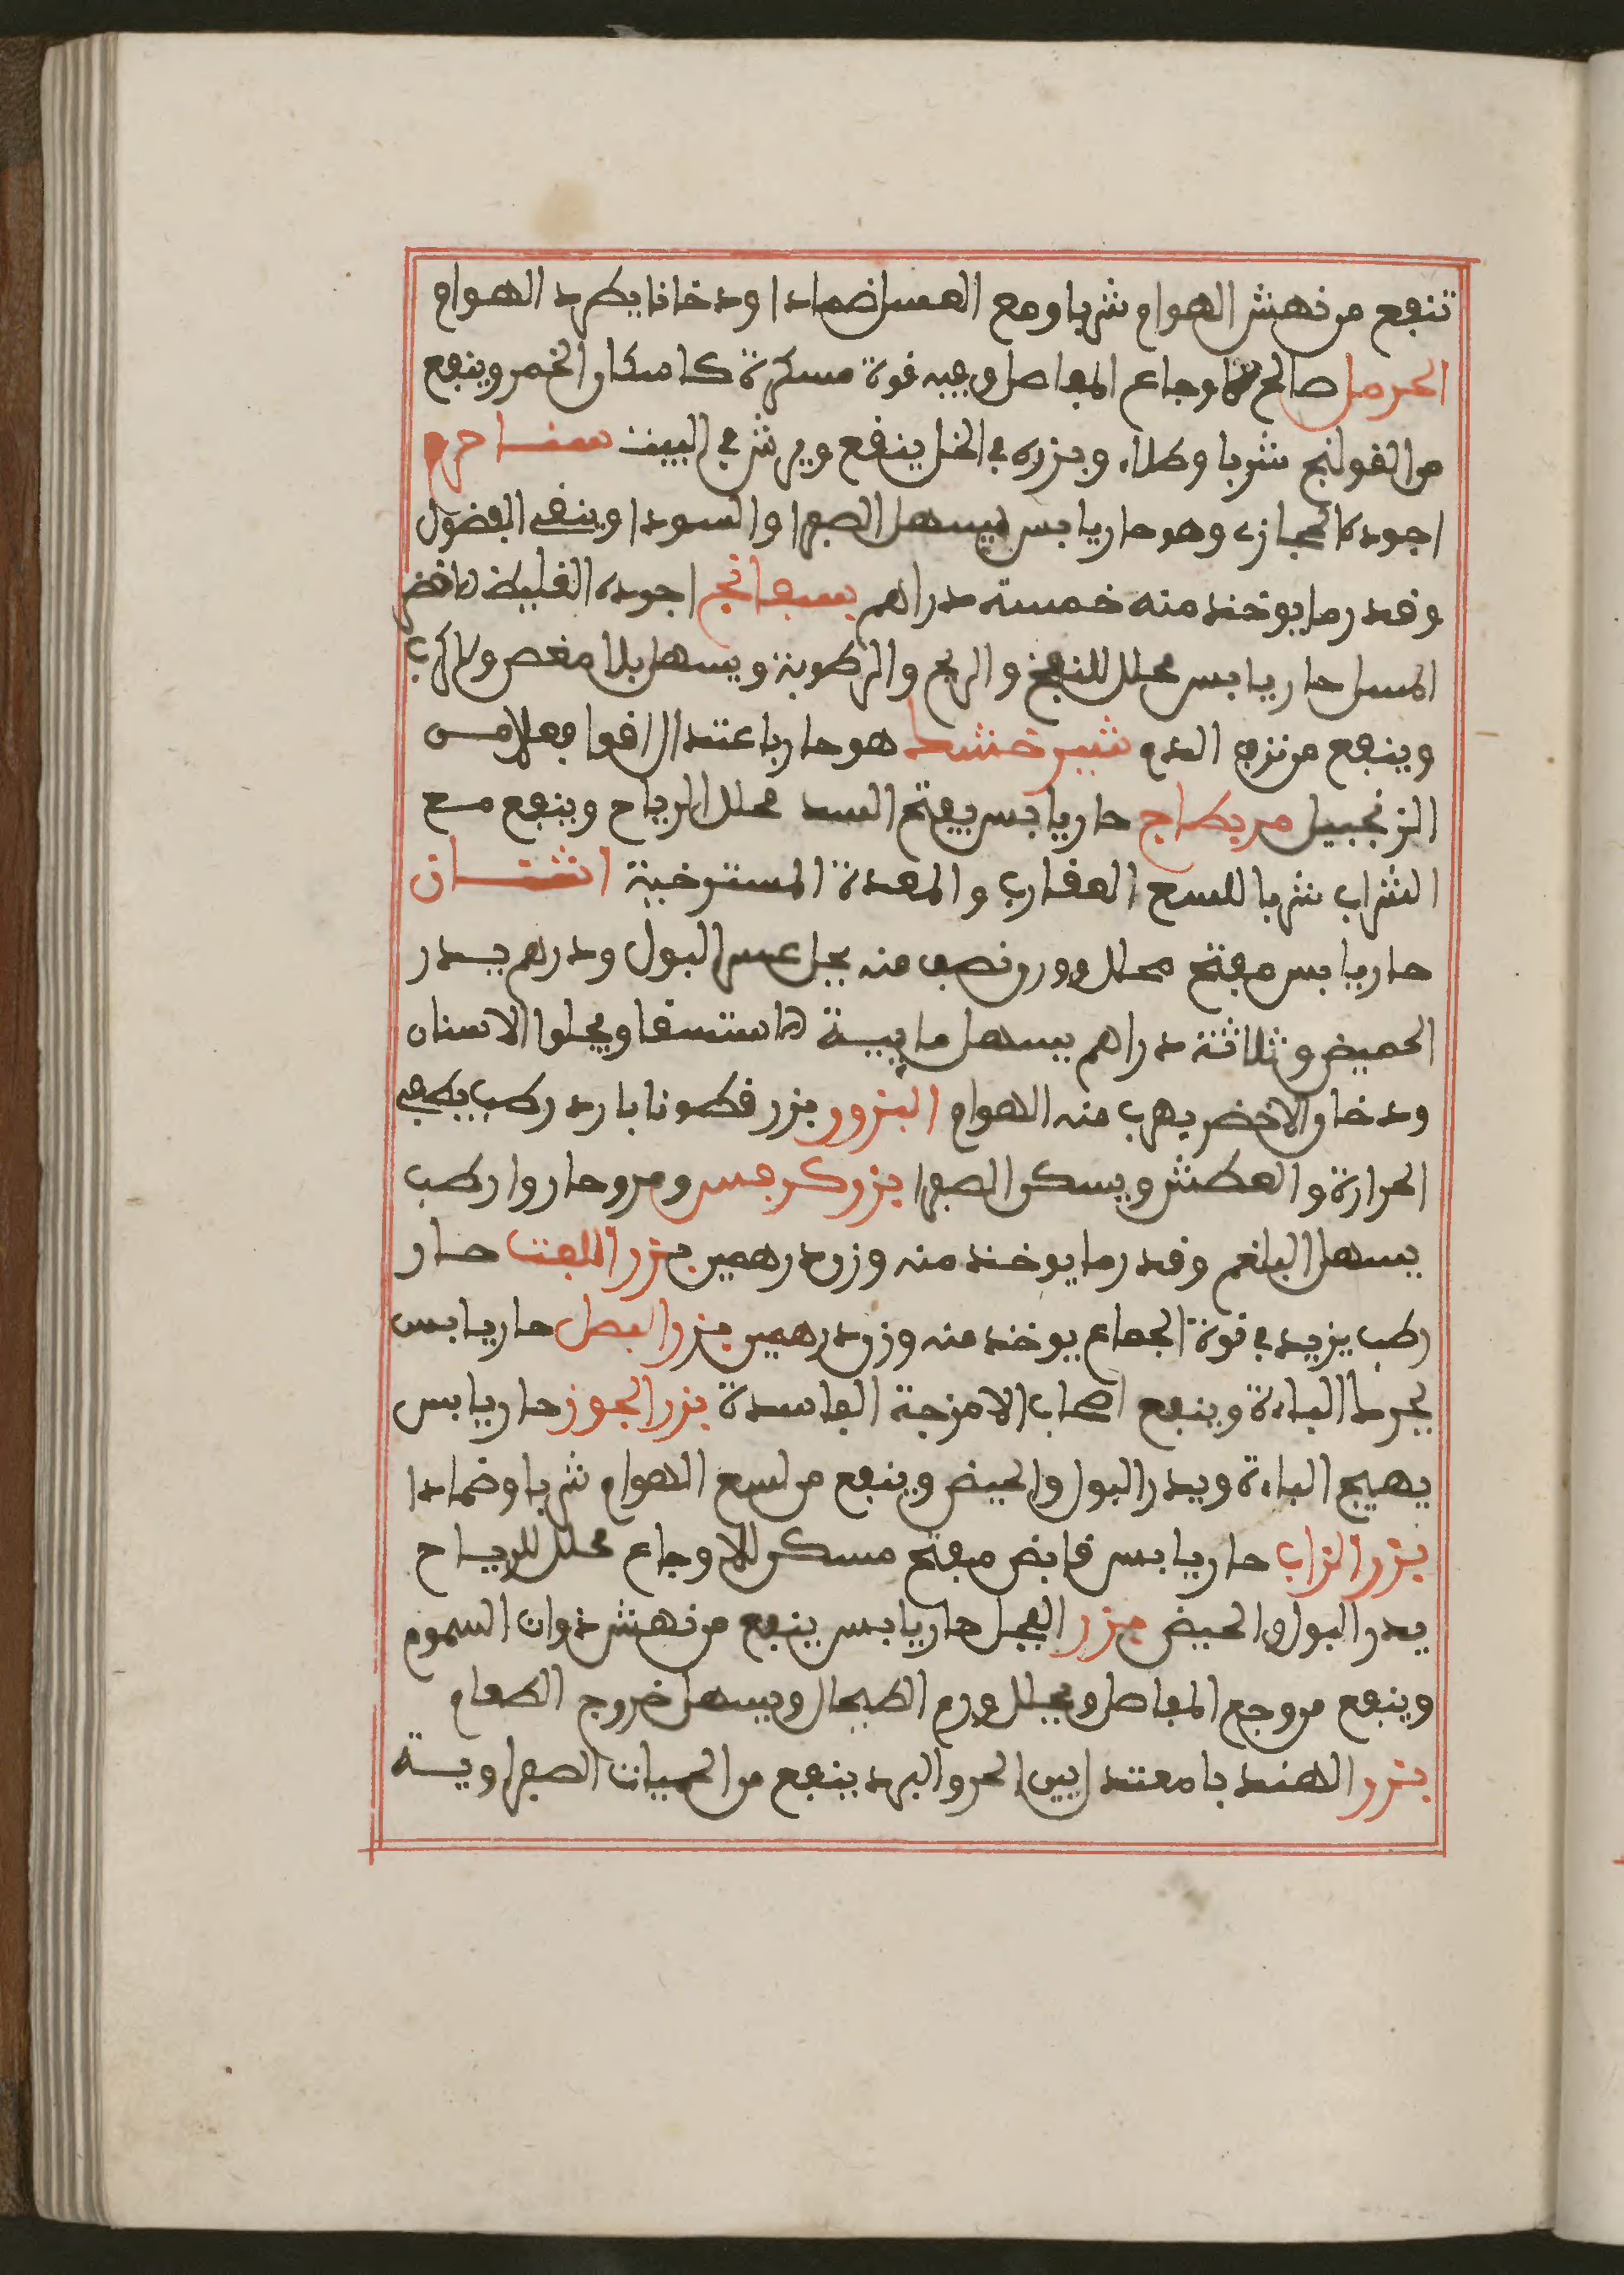 تنفع من نهش الهوام شربا ومع العسل ضمادا ودخانا يطرد الهوام
الحرمل صالح لاوجاع المفاصل وفيه قوة مسكرة كاسكار الخمر وينفع
من القولنج شربا وطلاء وبزره في الخل ينفع ويرش في البيت سنا حرم
اجوده الحجازي وهو حار يابس يسهل الصفرا والسودا وينقي الفضول
وقدر ما يوخذ منه خمسة دراهم بسفانج اجوده الغليظ الاخضر
المسل حار يابس محلل للنفخ والريح والرطوبة ويسهل بلا مغص ولا كرب
وينفع من نزف الدم شيرخشك هو حار باعتدال اقوا فعلا من
الزنجبيل حار يابس يفتح السدد محلل الرياح وينفع مع
الشراب شربا للسع العقارب والمعدة المسترخية اشنان
حار يابس مفتح محلل وزن نصف منه يحل عسر البول ودرهم يدر
الحيض وثلاثة دراهم يسهل مايية الاستسقا ويجلوا الاسنان
ودخان الاخضر يهرب منه الهوام البزور بزر قطونا بارد رطب يطفي
الحرارة والعطش ويسكن الصفرا بزر كرفس ومرو حار وارطب
يسهل البلغم وقدر ما يوخذ منه وزن درهمين بزر اللفت حار
رطب يزيد في قوة الجماع يوخذ منه وزن درهمين بزر البصل حار يابس
يحرك الباءة وينفع اصحاب الامزجة الفاسدة بزر الجوز حار يابس
يهيج الباءة ويدر البول والحيض وينفع من لسع الهوام شربا وضمادا
بزر الزاب حار يابس قابض مفتح مسكن للاوجاع محلل للرياح
يدر البول والحيض بزر الفجل حار يابس ينفع من نهش ذوات السموم
وينفع من وجع المفاصل ويحلل ورم الطحال ويسهل خروج الطعام
بزر الهندبا معتدل بين الحر والبرد ينفع من الحميات الصفراوية